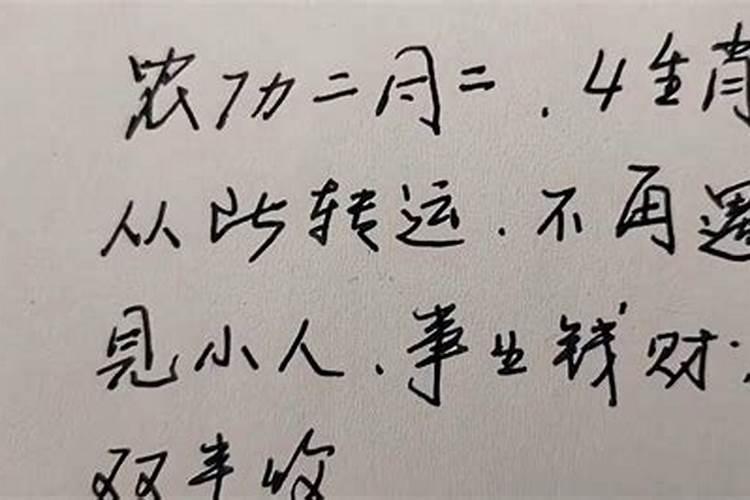 农历二月二.4生肖
从此转运.不再遇
见小人.事业钱财
双丰收